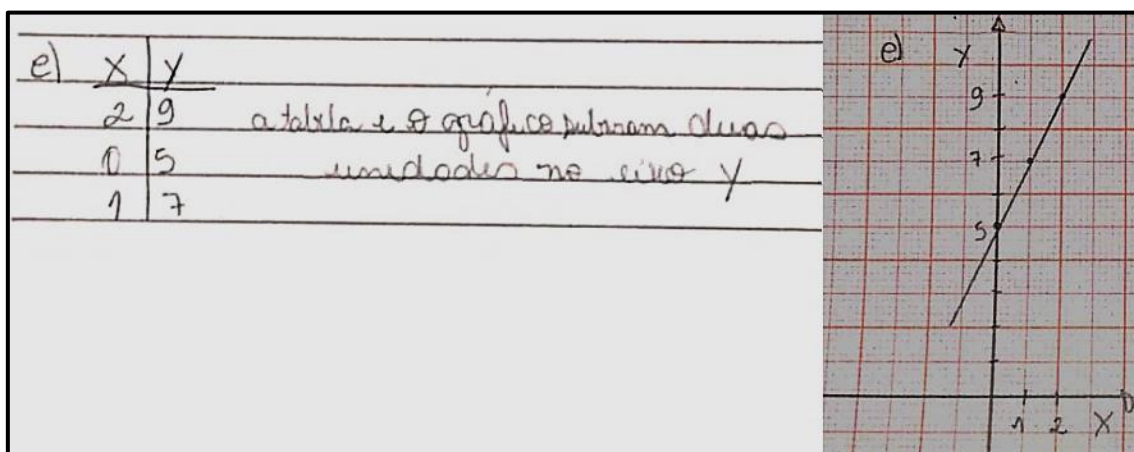 e) X Y
2 9
0 5
1 7
a tabela e o gráfico subiram duas
unidades no eixo Y
e) Y
9
7
5
1 2 X